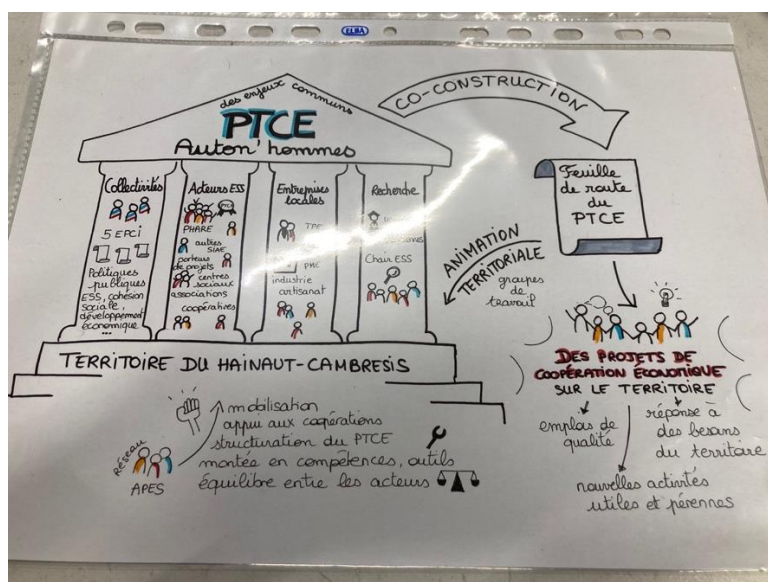 ELBA
des enjeux communs
PTCE
Auton'hommes
CO-CONSTRUCTION
Collectivités
5 EPCI
Politiques
publiques
ESS, cohésion
sociale,
développement
économique
...
Acteurs ESS
PTCE
PHARE
autres
SIAE
porteurs
de projets
centres
sociaux
associations
coopératives
Entreprises
locales
TPE
PME
industrie
artisanat
Recherche
Chair ESS
TERRITOIRE DU HAINAUT-CAMBRESIS
Feuille
de route
du
PTCE
ANIMATION
TERRITORIALE
groupes
de
travail
DES PROJETS DE
COOPÉRATION ÉCONOMIQUE
SUR LE TERRITOIRE
emplois de
qualité
réponse à
des besoins
du territoire
nouvelles activités
utiles et pérennes
Réseau
APES
mobilisation
appui aux coopérations
structuration du PTCE
montée en compétences, outils
équilibre entre les acteurs